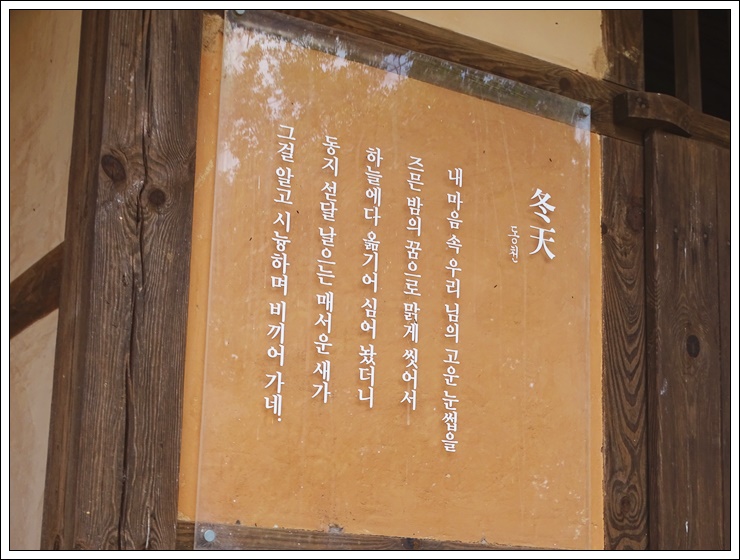 冬天
동천
내 마음 속 우리 님의 고운 눈썹을
즈믄 밤의 꿈으로 맑게 씻어서
하늘에다 옮기어 심어 놨더니
동지 섣달 날으는 매서운 새가
그걸 알고 시늉하며 비끼어 가네.